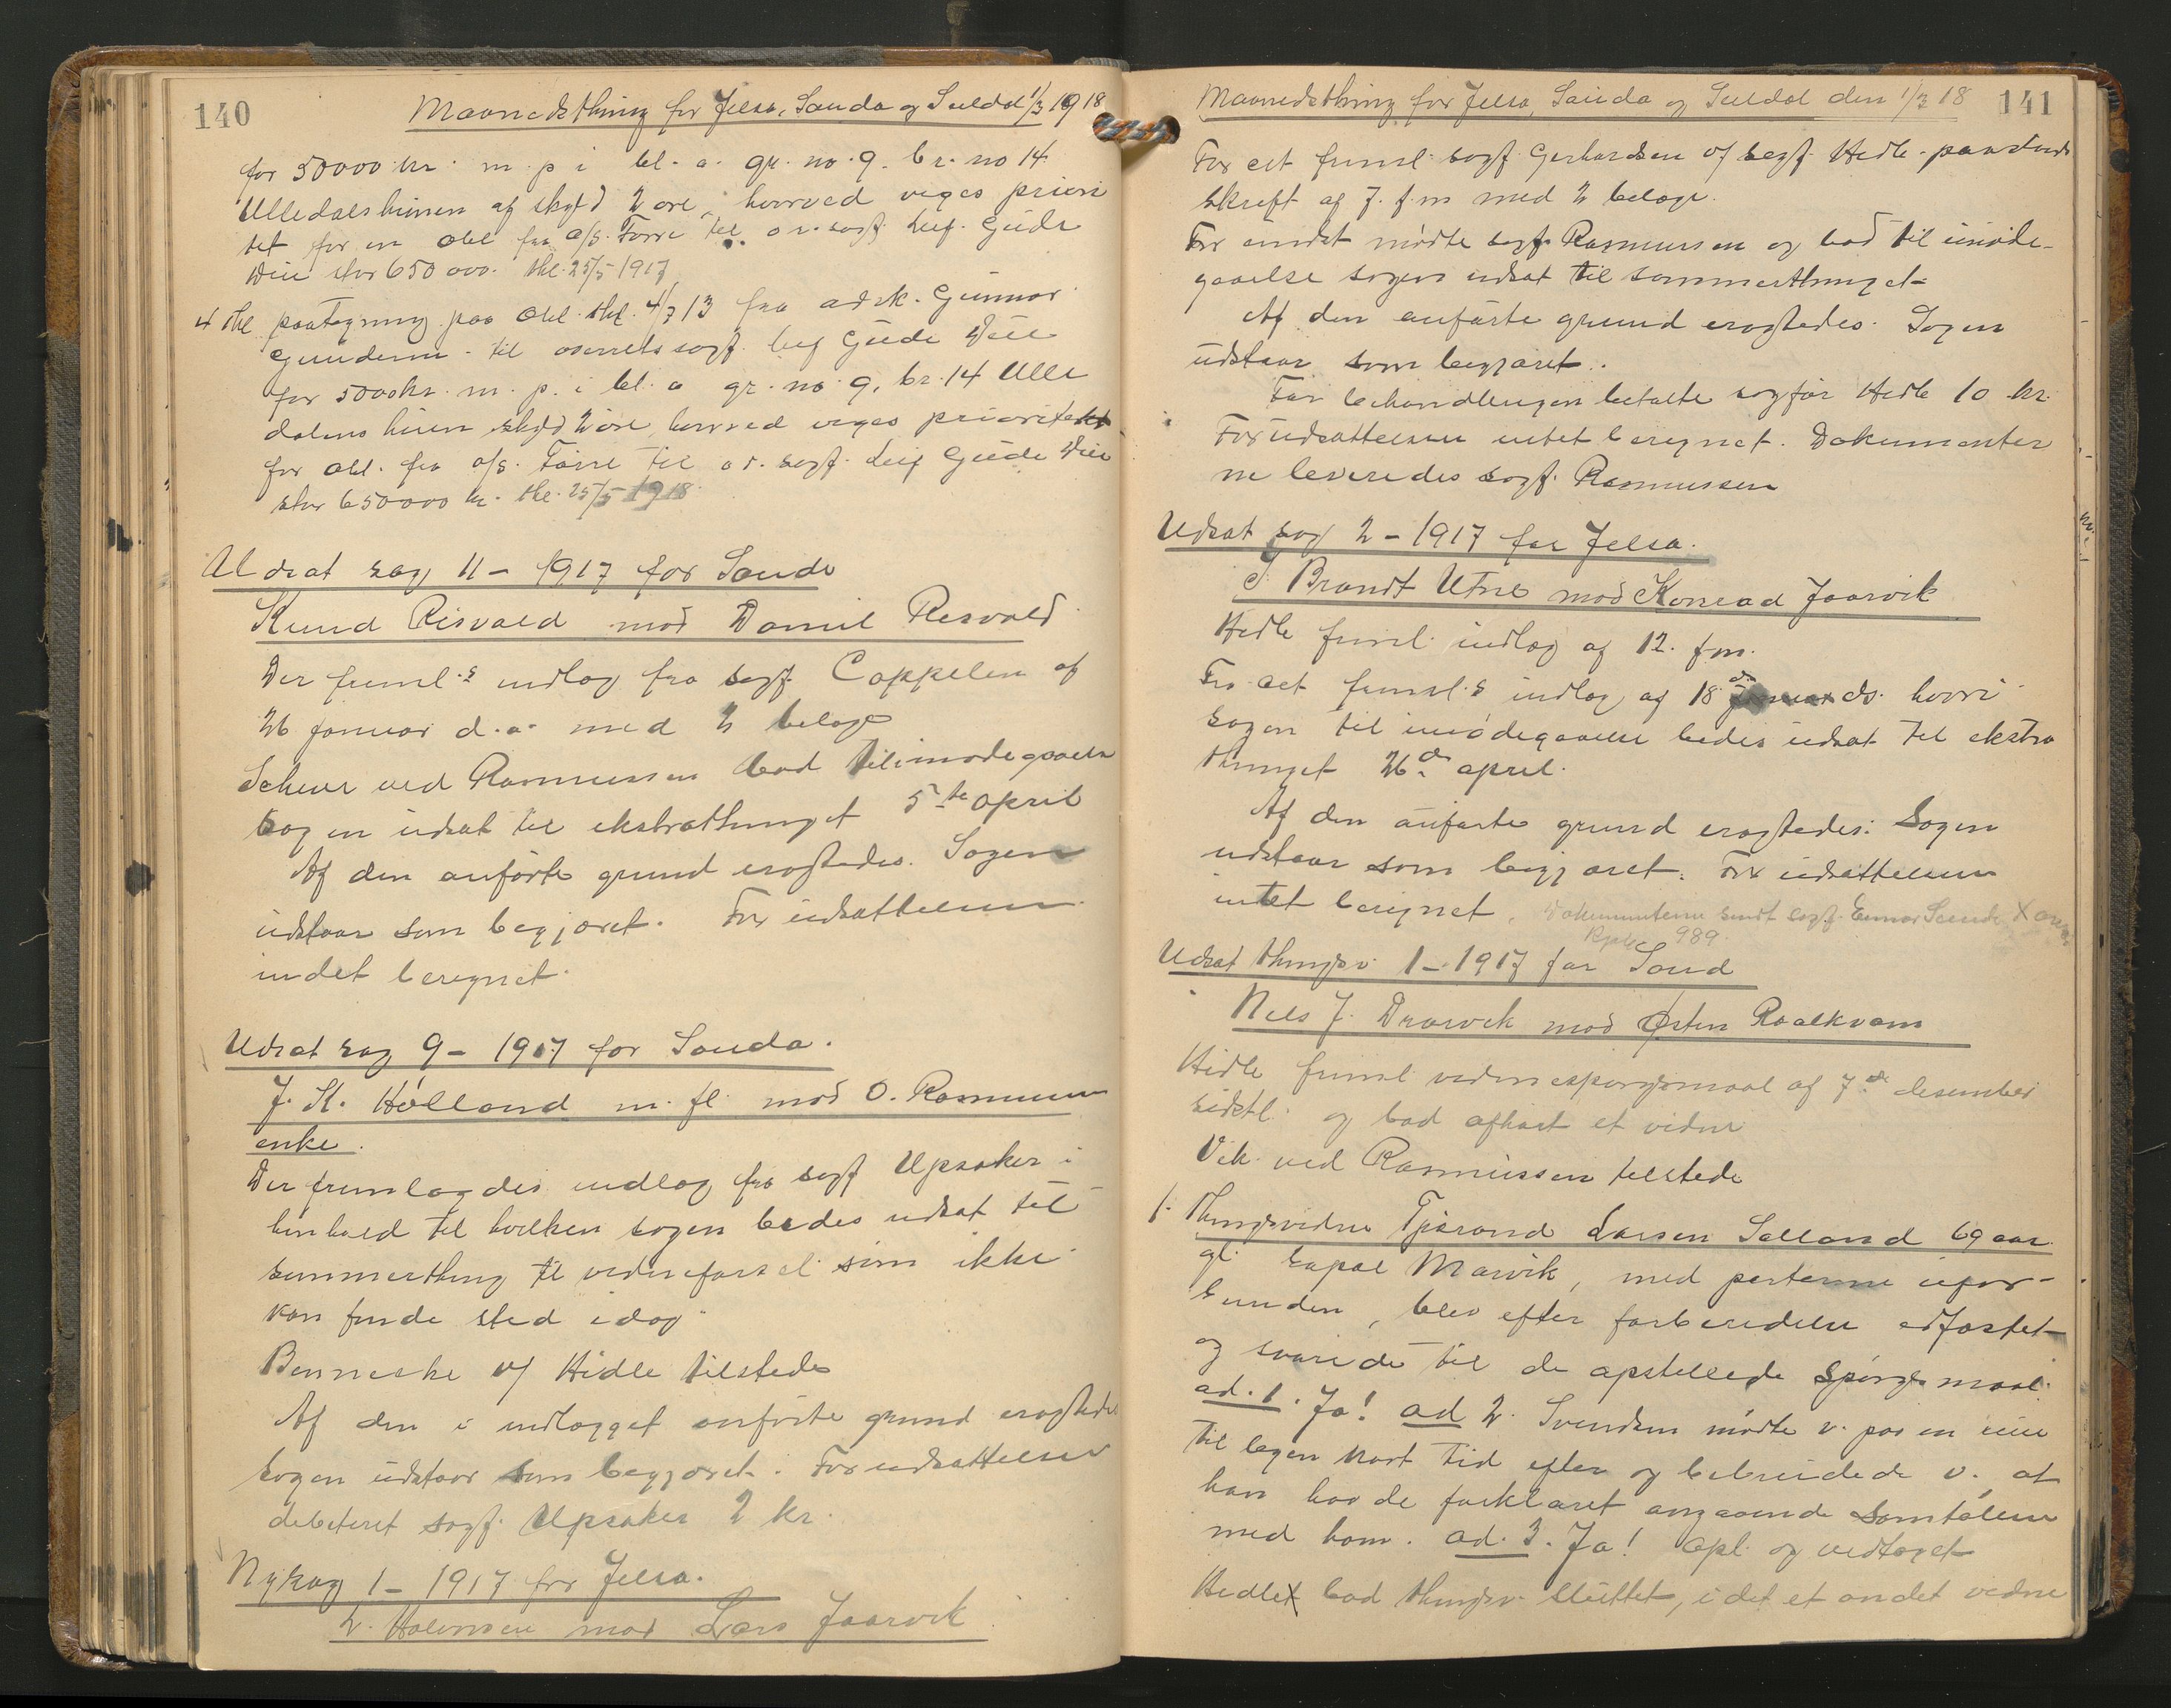 140
Maanedsthing for Jelsa, Sauda og Suldal 1/3 1918
for 50000 kr. m. p. i bl. a. gr. no. 9. br. no 14
Ulledalshiimen af skyld 2 øre, hvorved viges priori
tet for en obl fra A/S. Førre til o.r.sagf. Leif Gude
Due stor 650 000. thl. 25/5 1917
4 thl. paategning paa obl. thl. 4/7 13 fra adsk. Gunnar
Gundersen til overretssagf. Leif Gude Due
for 5000 kr. m. p. i bl. a gr. no. 9, br. 14 Ulle
dalens hiim skyld 2 øre, hvorved viges prioritet
for obl. fra a/s. Førre til o.r. sagf. Leif Gude Due
stor 650000 kr. thl. 25/5 1918
Udsat sag 11 - 1917 for Saude
Knud Risvold mod Daniel Risvold
Der freml.s indlæg fra sagf. Cappelen af
26 januar d.a. med 2 bilage
Scheve ved Rasmussen bad til imødegaaelse
sagen udsat til ekstrathinget 5te april
Af den anførte grund eragtedes. Sagen
udstaar som begjæret. For udsættelsen
indet beregnet.
Udsat sag 9 - 1917 for Sauda.
J. K. Hølland m. fl. mod O. Rasmussens
enke.
Der fremlagdes indlæg fra sagf Opsaker i
henhold til hvilken sagen bedes udsat til
sommerthing til vidneførsel som ikke
kan finde sted idag
Benneche v/ Hidle tilstede
Af den i indlægget anførte grund eragtedes
sagen udstaar som begjæret. For udsættelsen
debiteret sagf. Opsaker 2 kr.
Ny sag 1 - 1917 for Jelsa.
L. Halvorsen mod Lars Jaarvik
Maanedsthing for Jelsa, Sauda og Suldal den 1/3 18 141
For cit freml. sagf. Gerhardsen v/ sagf. Hidle paastands
skrift af 7. f.m med 2 belæge.
For andet mødte sagf. Rasmussen og bad til imøde-
gaaelse sagen udsat til sommerthinget
Af den anførte grund eragtedes. Sagen
udstaar som begjæret.
For behandlingen betalte sagfør Hidle 10 kr.
For udsættelsen intet beregnet. Dokumenter
ne leveredes sagf. Rasmussen
Udsat sag 2 - 1917 for Jelsa.
J. Brandt Utne mod Konrad Jaarvik
Hidle freml. indlæg af 12. f.m.
For cit freml.s indlæg af 18 ds. hvori
sagen til imødegaaelse bedes udsat til ekstra
thinget 26d. april.
Af den anførte grund eragtedes: Sagen
udstaar som begjæret. For udsættelsen
intet beregnet. Dokumenterne sendt sagf. Einar Sunde X
989.
Udsat thingsv. 1 - 1917 for Saud
Nels J. Drarvik mod Østen Raalkvam
Hidle freml. vidnespørgsmaal af 7de desember
sidstl. og bad afhørt et vidne
Vik ved Rasmussen tilstede
1. Thingsvidne Tjærand Larsen Sælland 69 aar
gl. Marvik, med parterne ufor-
bunden, blev efter forberedelse edfæstet
og svarede til de opstillede spørgsmaal:
ad. 1. Ja! ad 2. Svendsen mødte v. paa en
til lagen kort tid efter og bebreidede v. at
han havde forklaret angaaende samtalen
med ham. ad. 3. Ja! Opl. og vedtaget
Hidle bad thingsv. sluttet, idet et andet vidne